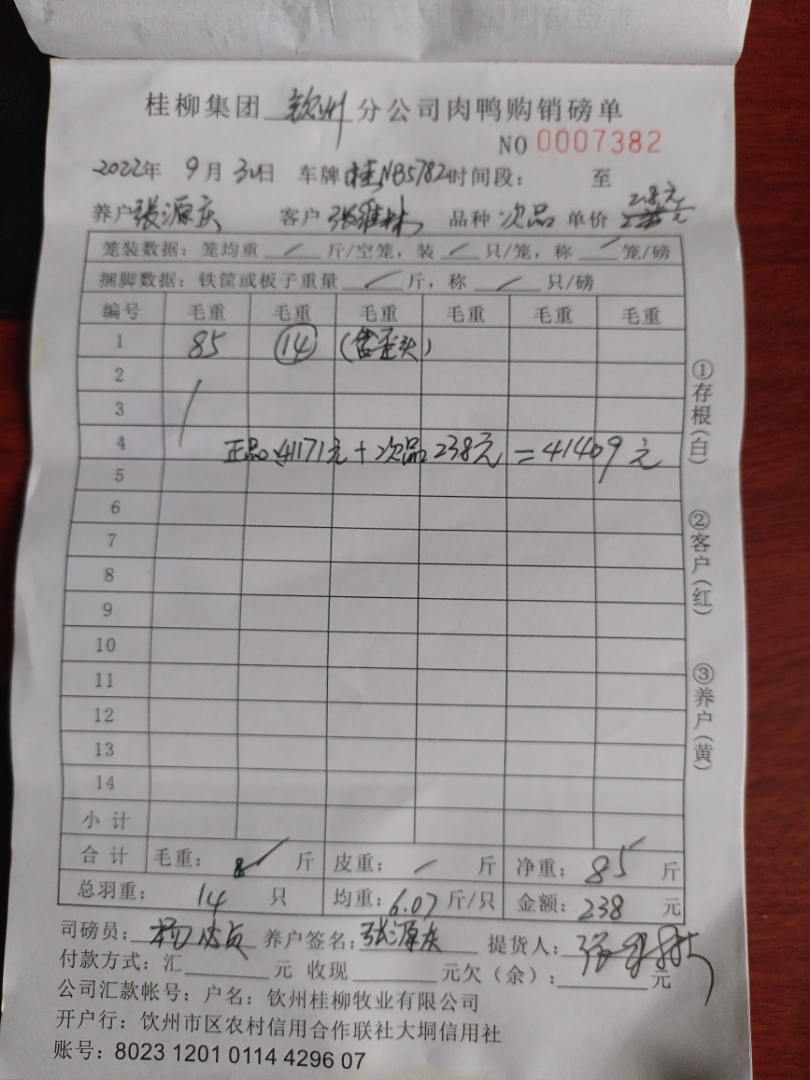 桂柳集团 钦州 分公司肉鸭购销磅单
NO 0007382
2022年 9月 30日 车牌 桂NB5782 时间段： 至
养户 张源庆 客户 张维林 品种 次品 单价 2.8元
笼装数据：笼均重 / 斤/空笼，装 / 只/笼，称 / 笼/磅
捆脚数据：铁筐或板子重量 / 斤，称 / 只/磅
编号 毛重 毛重 毛重 毛重 毛重 毛重
1 85 14 (含歪头)
2
3
4 正品41171元+次品238元=41409元
5
6
7
8
9
10
11
12
13
14
小计
合计 毛重： 斤 皮重： / 斤 净重：85 斤
总羽重： 14 只 均重：6.07 斤/只 金额：238 元
司磅员： 养户签名：张源庆 提货人：
付款方式：汇 元 收现 元欠（余）： 元
公司汇款帐号：户名：钦州桂柳牧业有限公司
开户行：钦州市区农村信用合作联社大垌信用社
账号：8023 1201 0114 4296 07
①存根(白)
②客户(红)
③养户(黄)